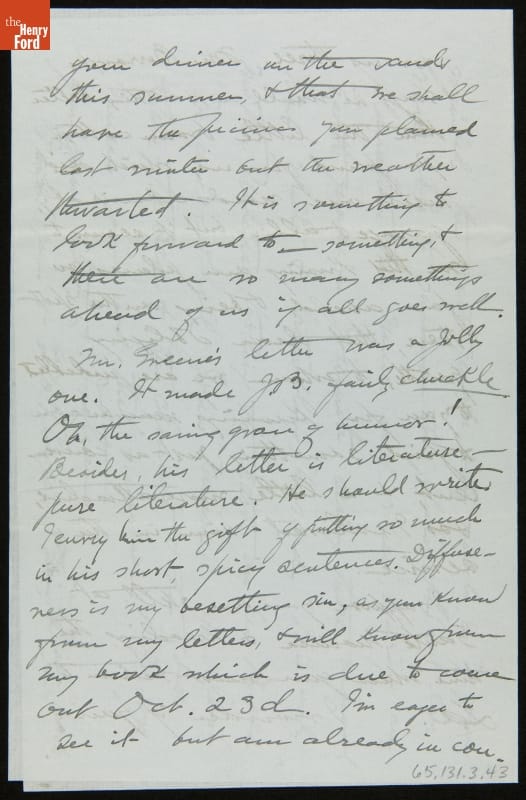 the
Henry
Ford
your dinner on the sands
this summer, & that we shall
have the picnics you planned
last winter but the weather
thwarted. It is something to
look forward to — something, &
there are so many somethings
ahead of us if all goes well.
Mr. Greene's letter was a jolly
one. It made J.B. fairly chuckle.
Oh, the saving grace of humor!
Besides, his letter is literature —
pure literature. He should write
I envy him the gift of putting so much
in his short, spicy sentences. Diffuse-
ness is my besetting sin, as you know
from my letters, & will know from
my book which is due to come
out Oct. 23d. I'm eager to
see it but am already in con-
65.131.3.43